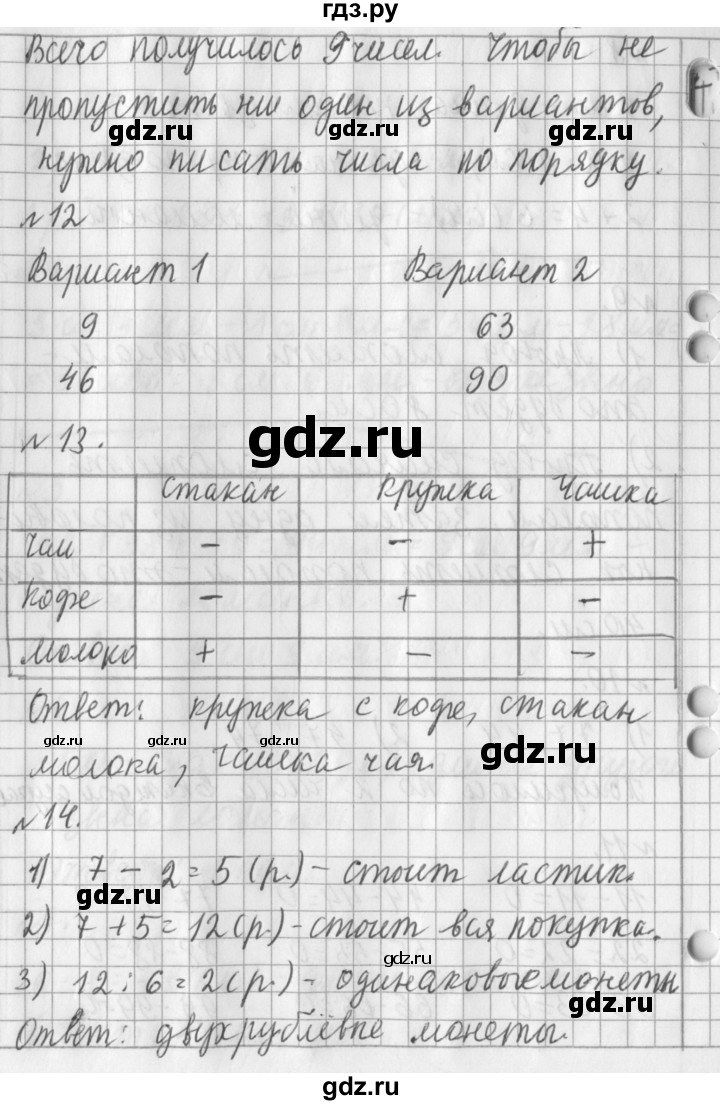 гдз.ру
Всего получилось 9 чисел. Чтобы не
пропустить ни один из вариантов,
gdz.ru gdz.ru gdz.ru
нужно писать числа по порядку.
№12
Вариант 1 Вариант 2
9 63
46 90
gdz.ru
№13.
стакан кружка чашка
чай - - +
кофе - + -
молоко + - -
Ответ: кружка с кофе, стакан
gdz.ru gdz.ru gdz.ru gdz.ru gdz.ru
молока, чашка чая.
№14.
1) 7 - 2 = 5 (р.) - стоит ластик.
gdz.ru
2) 7 + 5 = 12 (р.) - стоит вся покупка.
gdz.ru
3) 12 : 6 = 2 (р.) - одинаковые монеты
gdz.ru
Ответ: двухрублёвые монеты.
gdz.ru